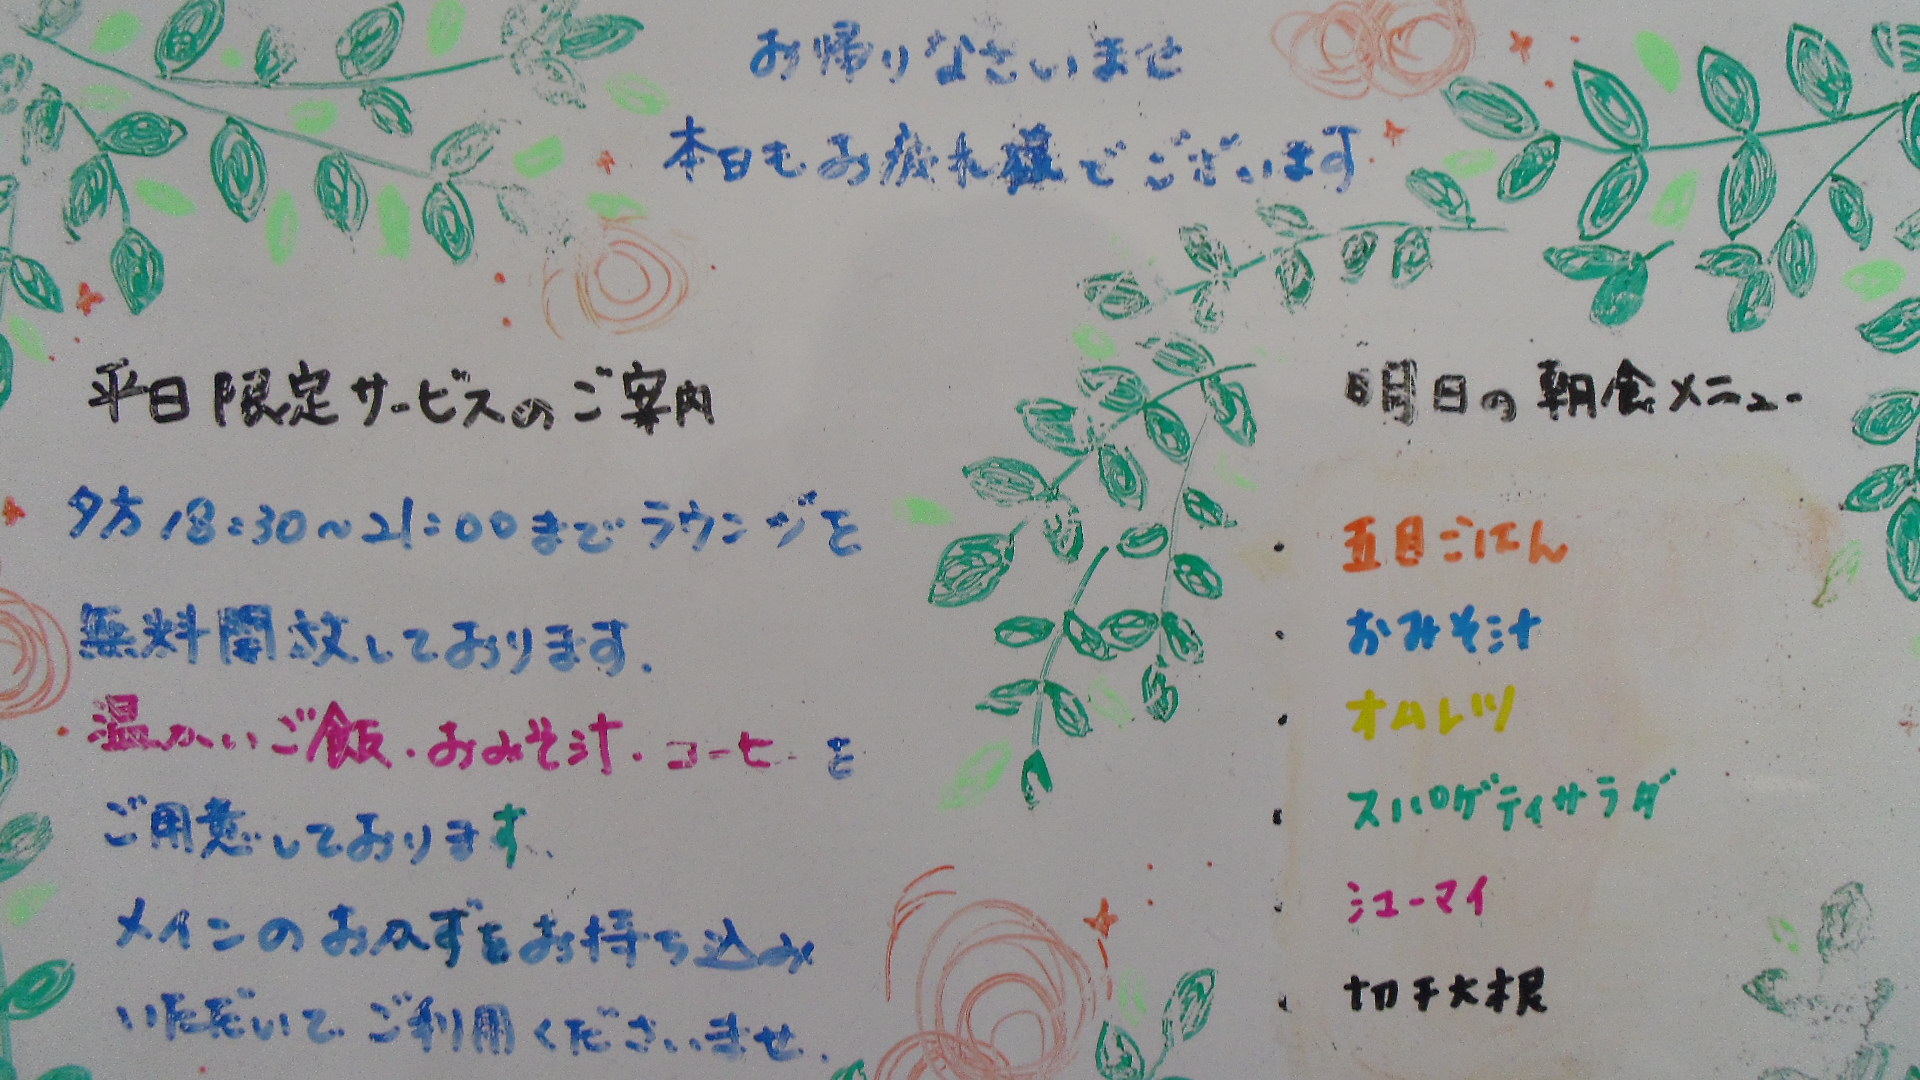 お帰りなさいませ
本日もお疲れ様でございます
平日限定サービスのご案内
夕方18:30~21:00までラウンジを
無料開放しております。
温かいご飯・おみそ汁・コーヒーを
ご用意しております、
メインのおかずをお持ち込み
いただいてご利用くださいませ.
明日の朝食メニュー
・五目ごはん
・おみそ汁
・オムレツ
・スパゲティサラダ
・シューマイ
・切干大根